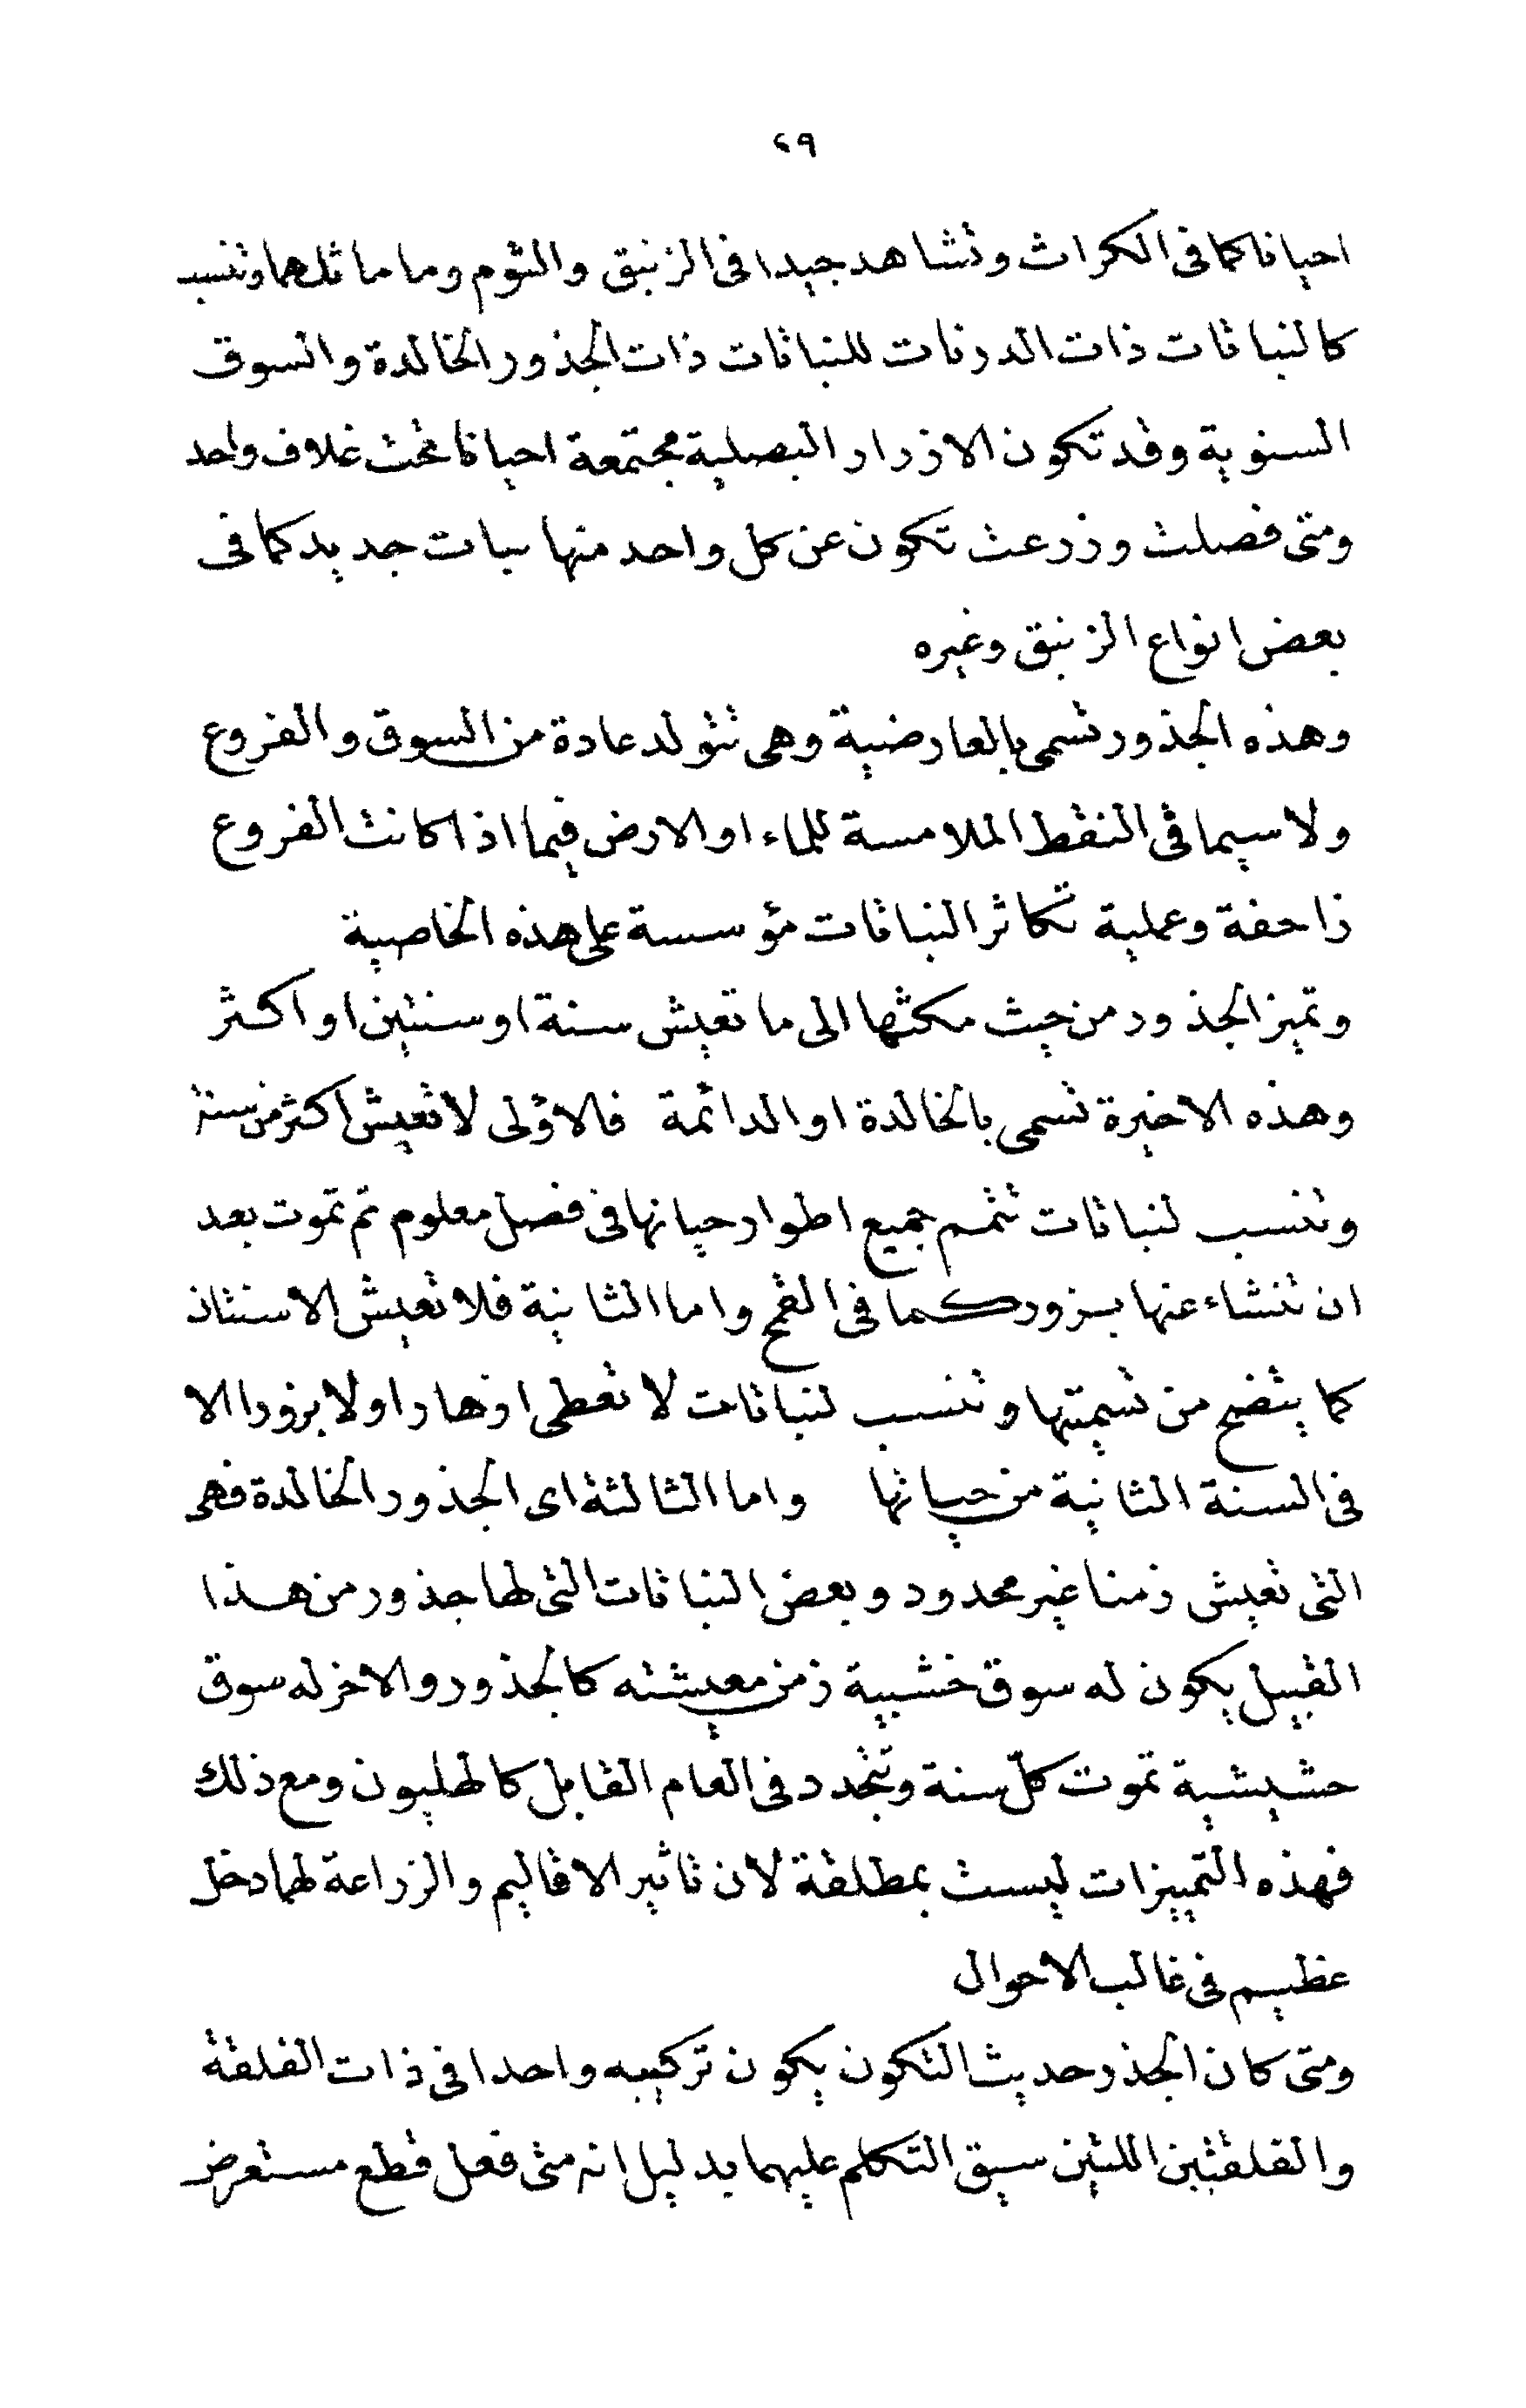 ٢٩
احيانا كما فى الكراث وتشاهد جيدا فى الزنبق والثوم وما ماثلهما وتنسب
كالنباتات ذات الدرنات للنباتات ذات الجذور الخالدة والسوق
السنوية وقد تكون الازرار البصلية مجتمعة احيانا تحت غلاف واحد
ومتى فصلت وزرعت تكون عن كل واحد منها نبات جديد كما فى
بعض انواع الزنبق وغيره
وهذه الجذور تسمى بالعارضية وهى تتولد عادة من السوق والفروع
ولا سيما فى النقط الملامسة للماء او الارض فيما اذا كانت الفروع
زاحفة وعملية تكاثر النباتات مؤسسة على هذه الخاصية
وتميز الجذور من حيث مكثها الى ما تعيش سنة او سنتين او اكثر
وهذه الاخيرة تسمى بالخالدة او الدائمة فالاؤلى لا تعيش اكثر من سنة
وتنسب لنباتات تتمم جميع اطوار حياتها فى فصل معلوم ثم تموت بعد
ان تنشاء عنها بزور كما فى القمح واما الثانية فلا تعيش الا سنتان
كما يتضح من تسميتها وتنسب لنباتات لا تعطى ازهارا ولا بزورا الا
فى السنة الثانية من حياتها واما الثالثة اى الجذور الخالدة فهى
التى تعيش زمنا غير محدود وبعض النباتات التى لها جذور من هذا
القبيل يكون له سوق خشبية زمن معيشته كالجذور والاخر له سوق
حشيشية تموت كلّ سنة وتتجدد فى العام القابل كالهليون ومع ذلك
فهذه التمييزات ليست بمطلقة لان تاثير الاقاليم والزراعة لهما دخل
عظيم فى غالب الاحوال
ومتى كان الجذر حديث التكون يكون تركيبه واحدا فى ذات الفلقة
والفلقتين اللتين سبق التكلم عليهما بدليل انه متى فعل قطع مستعرض